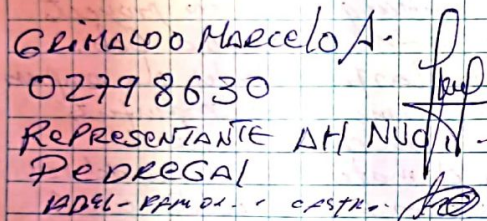 GRIMALDO MARCELO A.
02798630
REPRESENTANTE AH NUO
PEDREGAL
ABEL